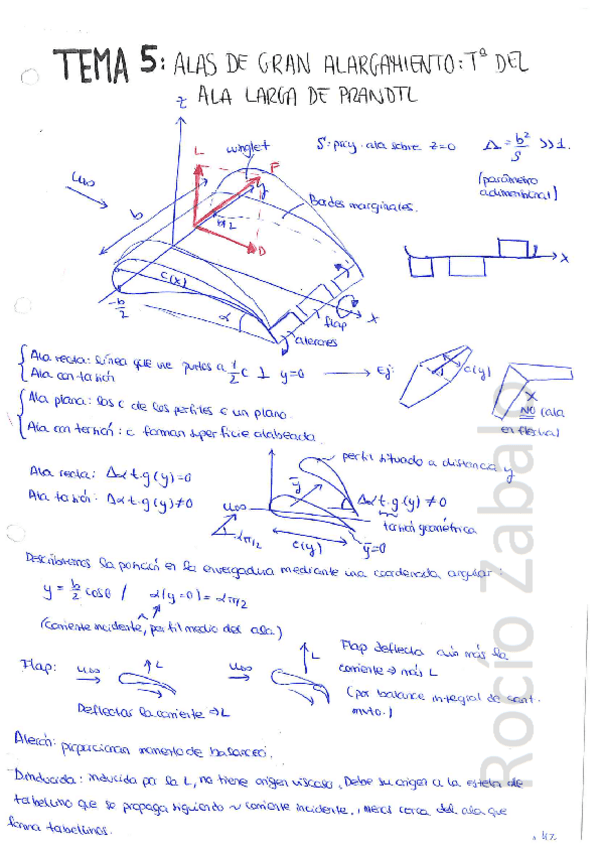 TEMA 5: ALAS DE GRAN ALARGAMIENTO: Tª DEL
ALA LARGA DE PRANDTL
z
L
winglet
F
S: proy. ala sobre z=0
Λ = b²/S >>1.
(parámetro
adimensional)
u∞
b
y
π/2
Bordes marginales.
D
x
c(x)
-b/2
α
flap
x
alerones
Ala recta: línea que une puntos a 1/2 c ⊥ y=0
Ej:
c(y)
Ala con torsión
NO (ala
en flecha)
Ala plana: las c de los perfiles c un plano.
Ala con torsión: c forman superficie alabeada.
perfil situado a distancia y
Ala recta: Δαt.g(y)=0
Ala torsión: Δαt.g(y)≠0
u∞
y
Δαt.g(y)≠0
torsión geométrica
απ/2
c(y)
y=0
Describiremos la posición en la envergadura mediante una coordenada angular:
y = b/2 cosθ / α(y=0) = απ/2
(corriente incidente, perfil medio del ala)
Flap:
u∞
L
u∞
L
Flap deflecta aún más la
corriente ⇒ más L
(por balance integral de cant.
mvto.)
Deflectar la corriente ⇒ L
Alerón: proporcionan momento de balanceo.
D.inducida: inducida por la L, no tiene origen viscoso. Debe su origen a la estela de
torbellino que se propaga siguiendo ~ corriente incidente, menos cerca del ala que
forma torbellinos.
Rocío Zabalo